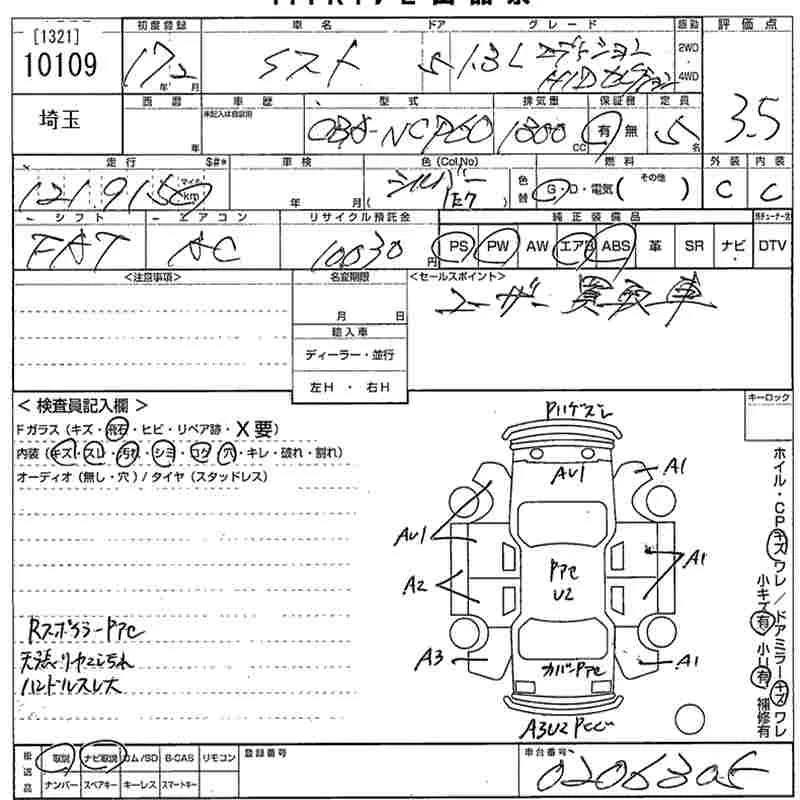 [1321]
10109
埼玉
初度登録 車名 ドア グレード 駆動 評価点
17年2月 イスト 5 1.3L エディション HIDセレクション 2WD 4WD 3.5
西暦 年 車歴 未記入は自家用 型式 排気量 保証書 定員
CBA-NCP60 1300CC 有 無 5名
走行 $#* 車検 色(Col.No) 燃料 外装 内装
121915 マイル km 年 月 シルバー ( 1E7 ) 色替 G・D・電気( その他 ) C C
シフト エアコン リサイクル預託金 純正装備品
FAT AC 10030円 PS PW AW エアB ABS 革 SR ナビ DTV
<注意事項> 名変期限 <セールスポイント>
月 日 ユーザー買取車
輸入車
ディーラー・並行
左H ・ 右H
< 検査員記入欄 > キーロック
Fガラス (キズ・飛石・ヒビ・リペア跡・X要)
内装 (キズ・スレ・汚れ・シミ・コゲ・穴・キレ・破れ・割れ)
オーディオ (無し・穴) / タイヤ (スタッドレス)
AU1 A1
AU1 A1
U2
A2
A3 A1
ホイル・CPキズ ワレ / ドアミラーキズ ワレ
小キズ有 小U有 補修有
ハンドルスレ大
後送品 取説 ナビ取説 ロム/SD B-CAS リモコン
ナンバー スペアキー キーレス スマートキー
登録番号 車台番号
0206305